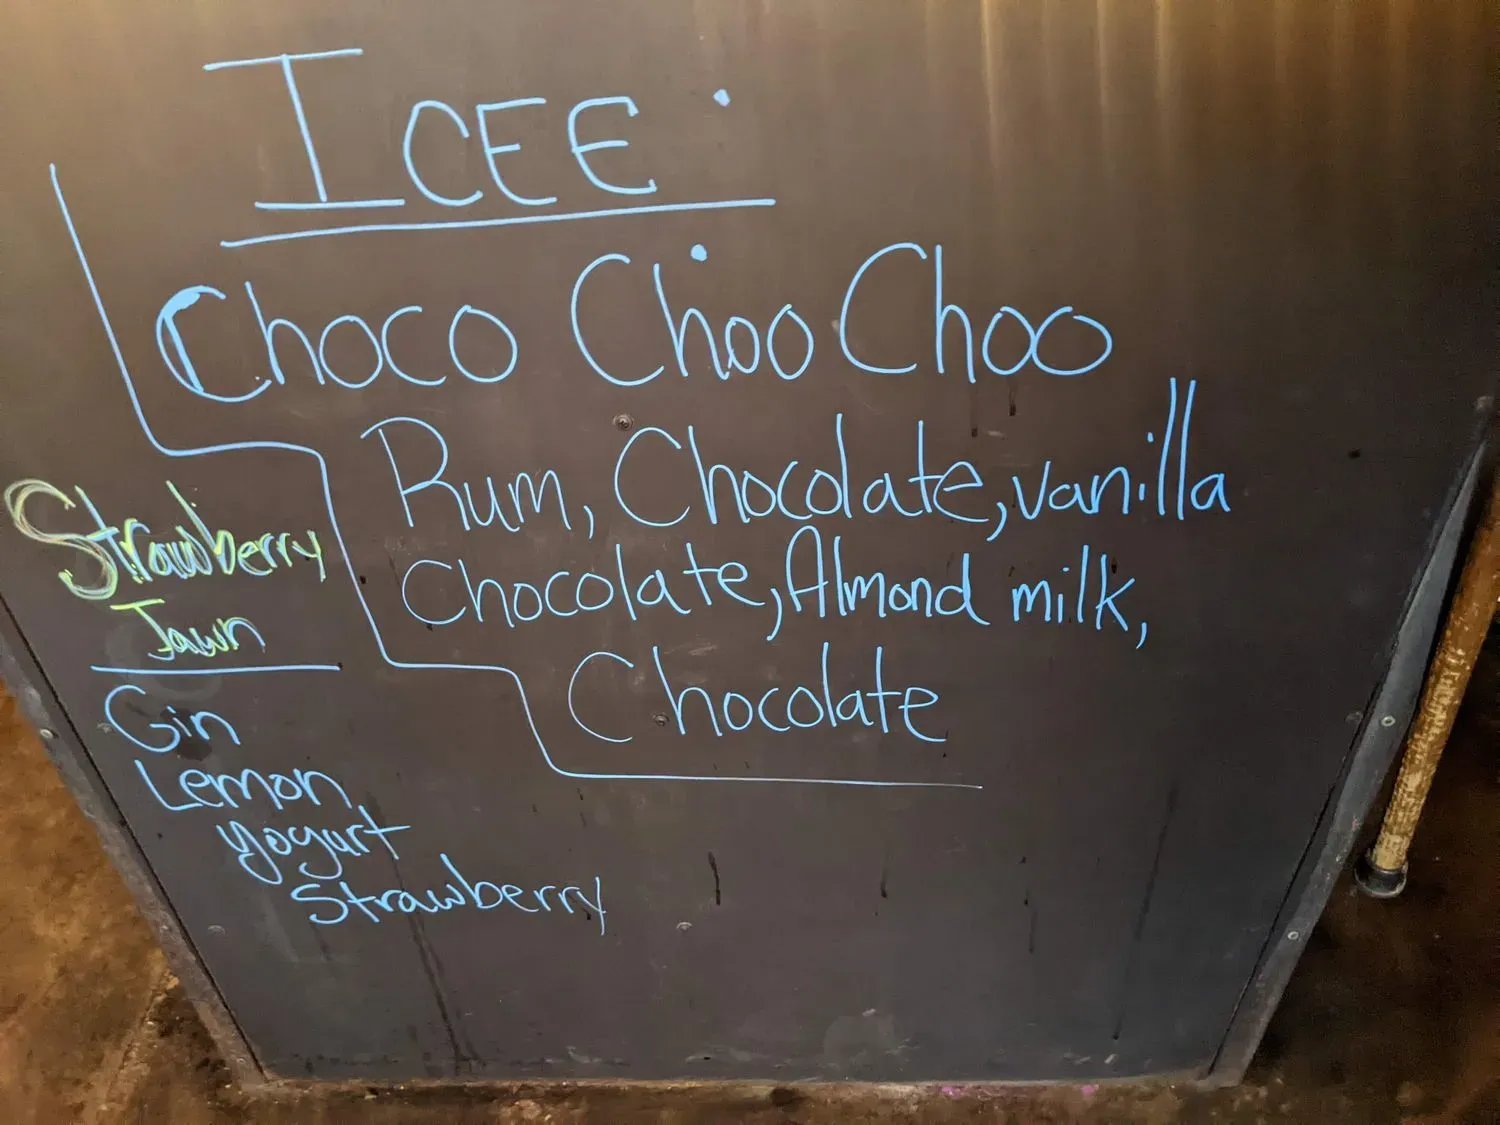 ICEE.
Choco Choo Choo
Rum, Chocolate, vanilla
Chocolate, Almond milk,
Chocolate
Strawberry
Jawn
Gin
Lemon,
yogurt
Strawberry